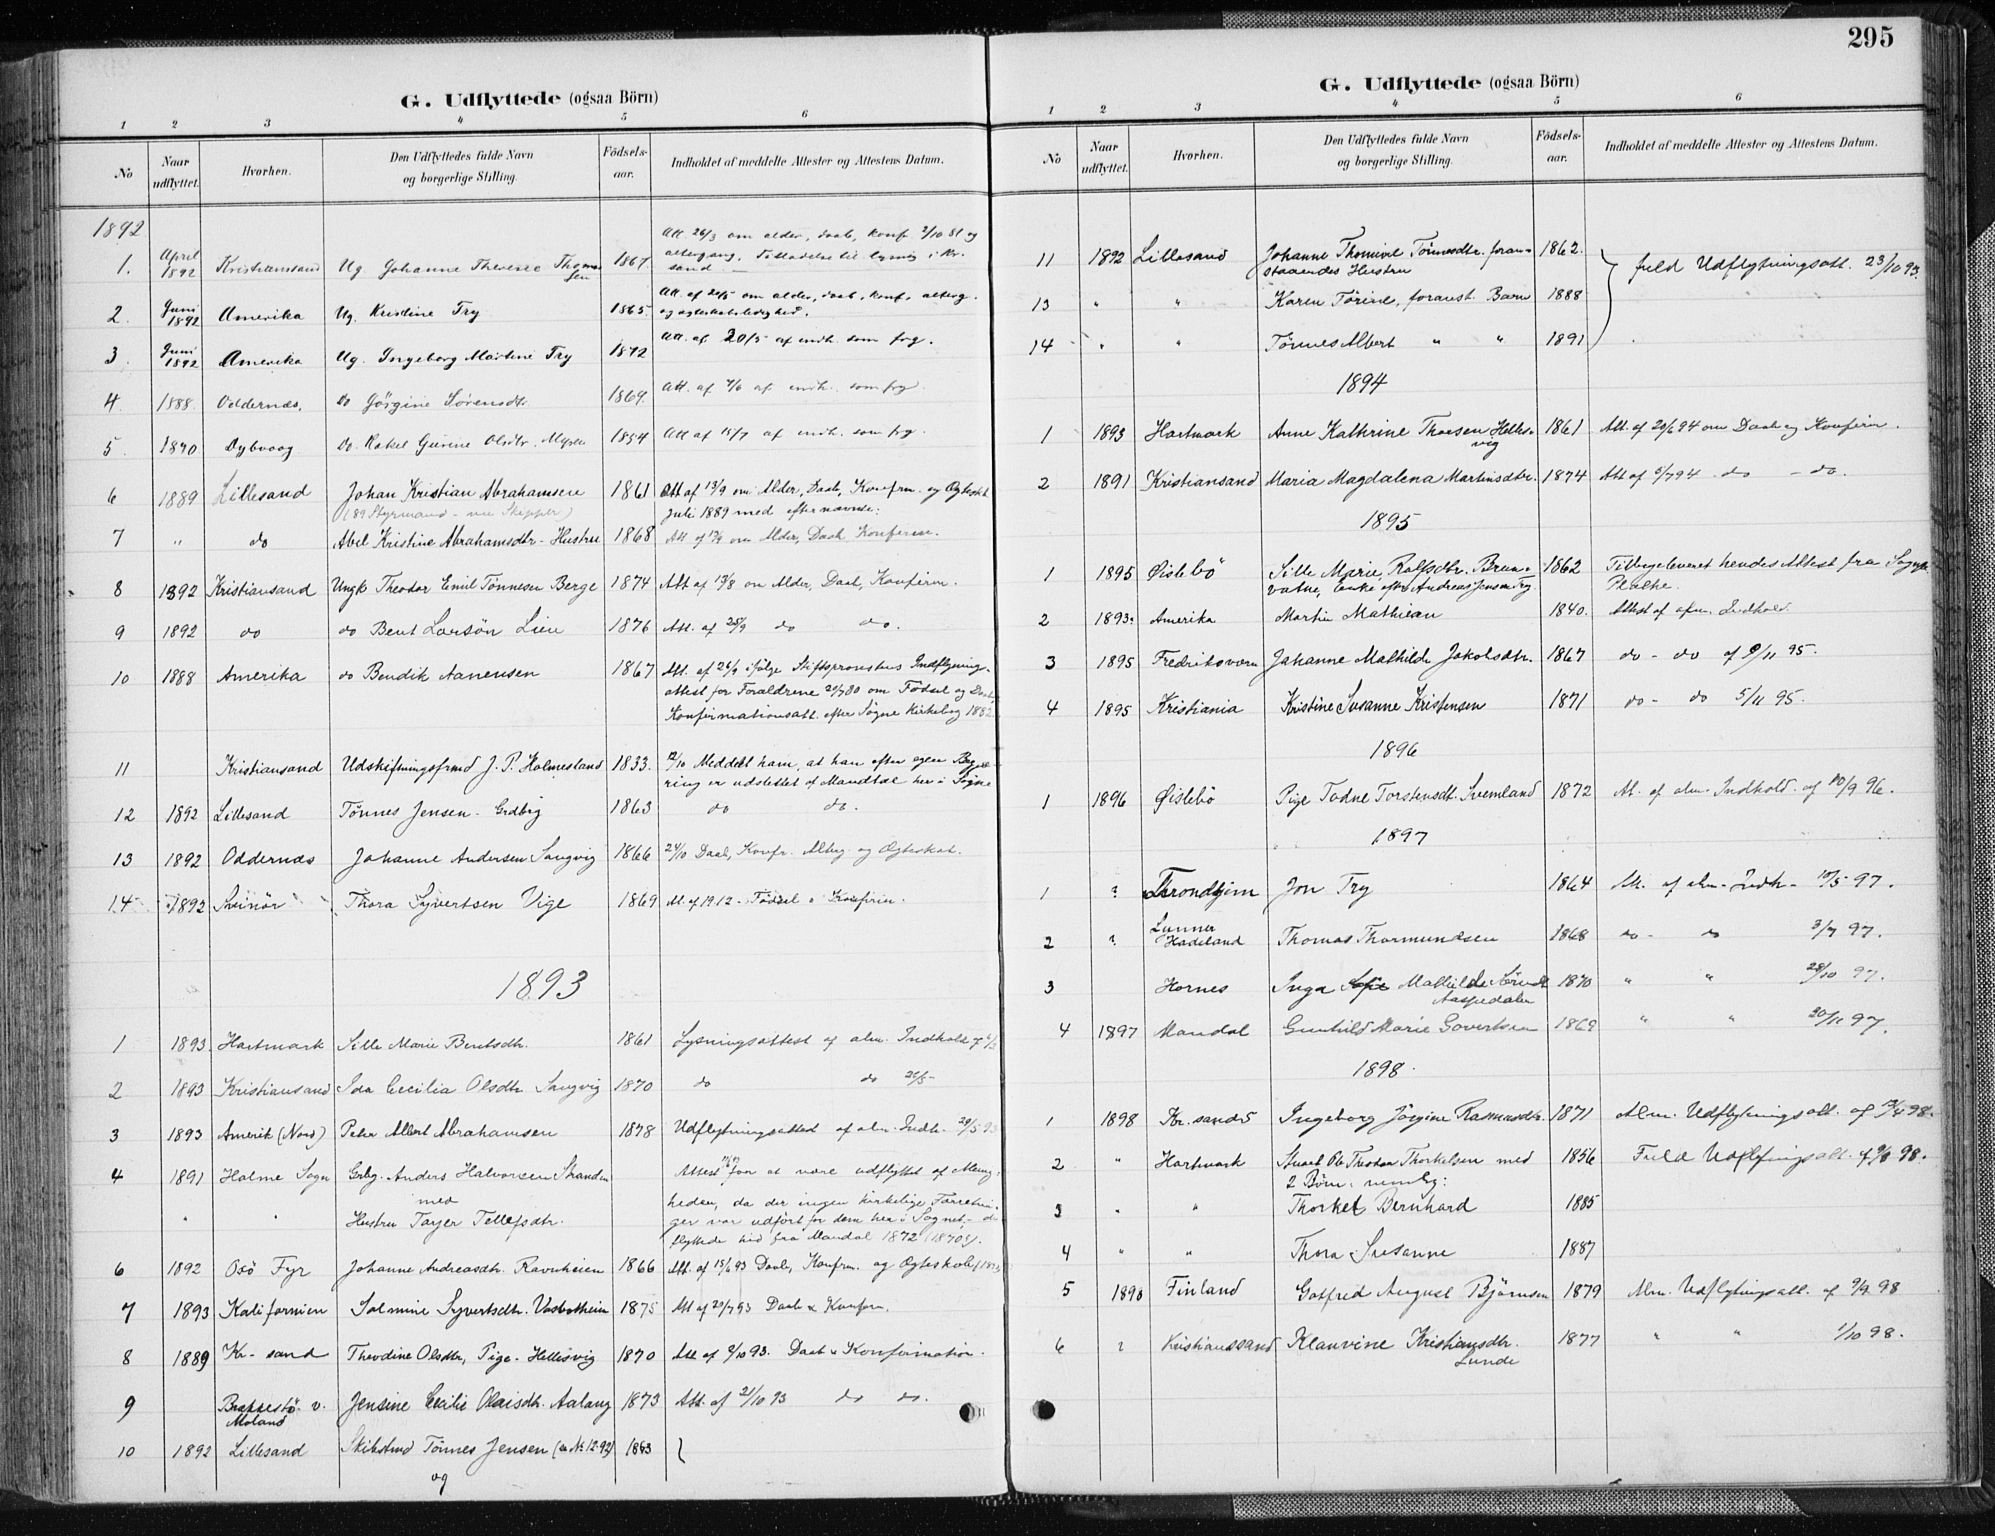 G. Udflyttede (ogsaa Börn)
1 2 3 4 5 6
No Naar udflyttet. Hvorhen. Den Udflyttedes fulde Navn og borgerlige Stilling. Födsels-aar. Indholdet af meddelte Attester og Attestens Datum.
1892
Att. 26/3 om alder, daab, konf. 2/10 81 og
1. April 1892 Kristianssand Ug. Johanne Therese Thomassen 1867. altergang. Tilladelse til lysning i Kr.sand.
2 Juni 1892 Amerika Ug. Kristine Try 1865. Att. af 20/5 om alder, daab, konf., alterg. og ægteskabsledighed.
3. Juni 1892 Amerika Ug. Ingeborg Martine Try 1872 Att. af 20/5 af indh. som frg.
4. 1888. Oddernæs. Do Görgine Sörensdtr. 1869. Att. af 7/6 af indh. som frg.
5 1890 Dybvaag Do. Rakel Gurine Olsdtr. Myren 1854 Att af 15/7 af indh. som frg.
6 1889 Lillesand Johan Kristian Abrahamsen 1861 Att af 13/9 om Alder, Daab, Konfirm. og Ægtesk.
(89 Styrmand - nu Skipper) Juli 1889 med efternævnte:
7 " do Abel Kristine Abrahamsdtr - Hustru 1868 Att af 13/9 om Alder, Daab Konfirm.
8 1892 Kristiansand Ungk Theodor Emil Tönnesen Berge 1874 Att af 13/8 om Alder, Daab, Konfirm.
9 1892 do do Bent Larsön Lien 1876 Att. af 28/9 do do.
10 1888 Amerika do Bendik Aanensen 1867 Att. af 26/9 ifölge Stiftsprovstens Indflytning-
attest for Forældrene 20/7 80 om Födsel og Daab,
Konfirmationsatt. efter Sögne Kirkebog 1882
11 Kristiansand Udskiftningsfrmd J. P. Holmesland 1833. 12/10 Meddelt ham, at han efter egen Begjæ-
ring er udslettet af Mandtal her i Sogne
12 1892 Lillesand Tönnes Jensen. Grdbrg 1863 do do.
13 1892 Oddernæs Johanne Andersen Langvig 1866 24/10 Daab, Konfr. Altrg. og Ægteskab.
14 1892 Svinör Thora Syvertsen Vige 1869 Att. af 19.12 - Födsel o Konfirm.
1893
1 1893 Hartmark Sille Marie Bentsdtr. 1861 Lysningsattest af alm. Indhold
2 1893 Kristiansand Ida Cecilia Olsdtr Langvig 1870 do do 26/5-
3 1893 Amerik (Nord) Peter Albert Abrahamsen 1878 Udflytningsattest af alm. Indh. 29/5 93
4 1891 Holme Sogn Grbg. Anders Halvorsen Stranden Attest for at være udflyttet af Menig-
med heden, da der ingen kirkelige Forretnin-
" " Hustru Taajer Tellefsdtr. ger var udfört for dem her i Sognet, - de
flyttede hid fra Mandal 1872 (1870?).
6 1892 Oxö Fyr Johanne Andreasdtr. Ravnheien 1866 Att. af 15/6 93 Daab, Konfirm. og Ægteskab
7 1893 Kalifornien Salmine Syvertsdtr. Vasbotheim 1875 Att af 20/7 93 Daab & Konfirm.
8 1889 Kr-sand Theodine Olsdtr, Pige - Hellesvig 1870 Att af 9/10 93. Daab & Konfirmation.
9 Brækkestö v. Moland Jensine Cecilie Olaisdtr. Aalaug 1873 Att. af 21/10 93 do do.
10 1892 Lillesand Skibstmd Tönnes Jensen (se No 12-92) 1863
og
295
G. Udflyttede (ogsaa Börn)
1 2 3 4 5 6
No Naar udflyttet. Hvorhen. Den Udflyttedes fulde Navn og borgerlige Stilling. Födsels-aar. Indholdet af meddelte Attester og Attestens Datum.
11 1892 Lillesand Johanne Thomine Tönnesdtr. foran- 1862. fuld Udflytningsatt. 23/10 93.
staaendes Hustru
13 " " Karen Törine, foranst. Barn 1888
14 " " Tönnes Albert " " 1891
1894
1 1893 Hartmark Anne Kathrine Thorsen Hellesvig 1861 Att. af 20/6 94 om Daab og Konfirm.
2 1891 Kristiansand Maria Magdalena Martinsdtr. 1874 Att af 5/7 94 do - do.
1895
1 1895 Öislebö Sille Marie Rolfsdtr. Brun- 1862 Tilbageleveret hendes Attest fra Sognepr.
vatne, Enke efter Andreas Jensen Try
2 1893. Amerika Martin Mathiesen 1840. Attest af alm. Indhold
3 1895 Fredriksværn Johanne Mathilde Jakobsdtr. 1867 do - do af 9/11 95.
4 1895 Kristiania Kristine Susanne Kristensen 1871 do - do 5/11 95.
1896
1 1896 Öislebö Pige Todne Torstensdt. Svemland 1872 At. af alm. Indhold af 10/9 96.
1897
1 ? Throndhjem Jon Try 1864 Att. af alm. Indh. 10/5 97.
2 ? Lunner Hadeland Thomas Thormundsen 1868 do - do 3/7 97.
3 Hornes Inga Mathilde Aaspedalen 1870 " " 28/10 97.
4 1897 Mandal Gunhild Marie Govertsen 1869 " " 20/11 97.
1898.
1 1898 Kr. sand Ingeborg Jörgine Rasmusdtr. 1871 Alm. Udflytningsatt. af 13/4 98.
2 " Hartmark Theodor Thorkelsen med 1856 Fuld Udflytningsatt. af 98.
2 Börn, nemlig:
3 " " Thorkel Bernhard 1885
4 " " Thora Susanne 1887
5 1898 Finland Gotfred August Björnsen 1879 Alm. Udflytningsatt. af 9/9 98
6 ? Kristianssand Klauvine Kristiansdtr. Lunde 1877 " " 1/10 98.